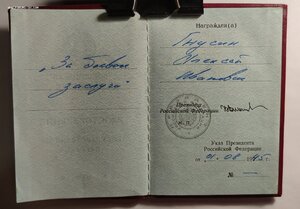 „За боевые
заслуги“
Награждён(а)
Гнусин
Алексей
Иванович
Президент
Российской Федерации
М.П.
Указ Президента
Российской Федерации
от 01.08 1995г.
№ —